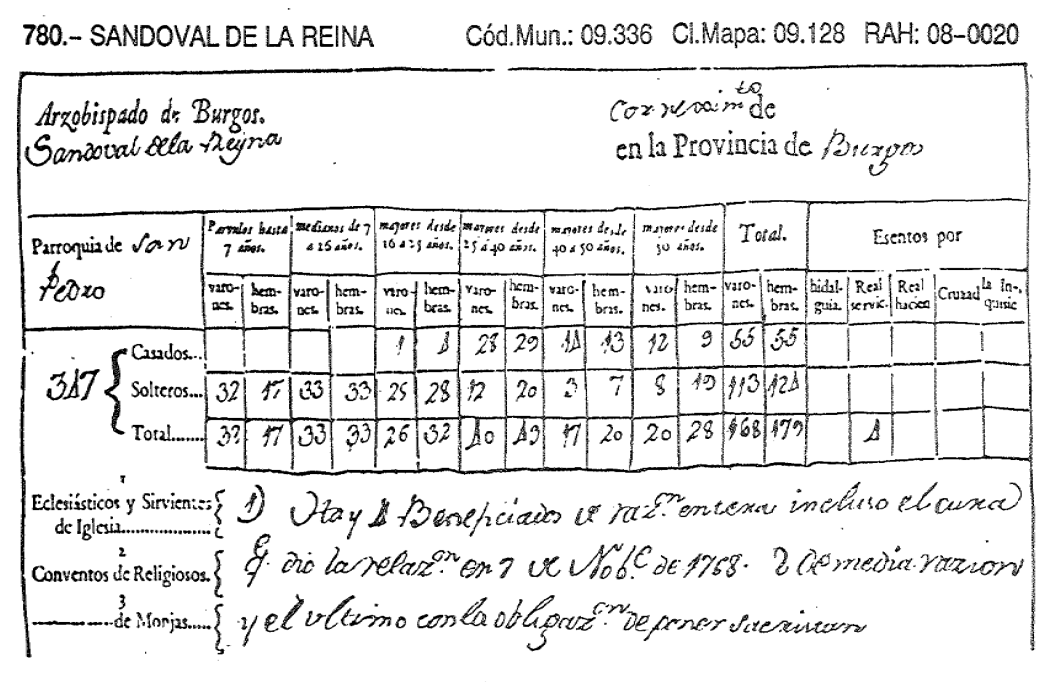 780.– SANDOVAL DE LA REINA Cód.Mun.: 09.336 Cl.Mapa: 09.128 RAH: 08–0020
Arzobispado de Burgos. Correxim.to de
Sandoval de la Reyna en la Provincia de Burgos
Parroquia de San Pedro
Parvulos hasta 7 años. medianos de 7 a 16 años. mayores desde 16 a 25 años. mayores desde 25 a 40 años. mayores desde 40 a 50 años. mayores desde 50 años. Total. Esentos por
varones. hembras. varones. hembras. varones. hembras. varones. hembras. varones. hembras. varones. hembras. varones. hembras. hidalguia. Real servic. Real hacien Cruzad la Inquisic
347
Casados... 1 4 28 29 14 13 12 9 55 55
Solteros... 32 17 33 33 25 28 12 20 3 7 8 19 113 124
Total....... 32 17 33 33 26 32 40 49 17 20 20 28 168 179 4
1
Eclesiásticos y Sirvientes de Iglesia.................... 1) Hay 4 Beneficiados de raz.on entera incluso el cura
2
Conventos de Religiosos. q.e dio la relaz.on en 7 de Nob.e de 1768. 2 de media razion
3
----------------de Monjas..... y el ultimo con la obligaz.on de poner sacristan